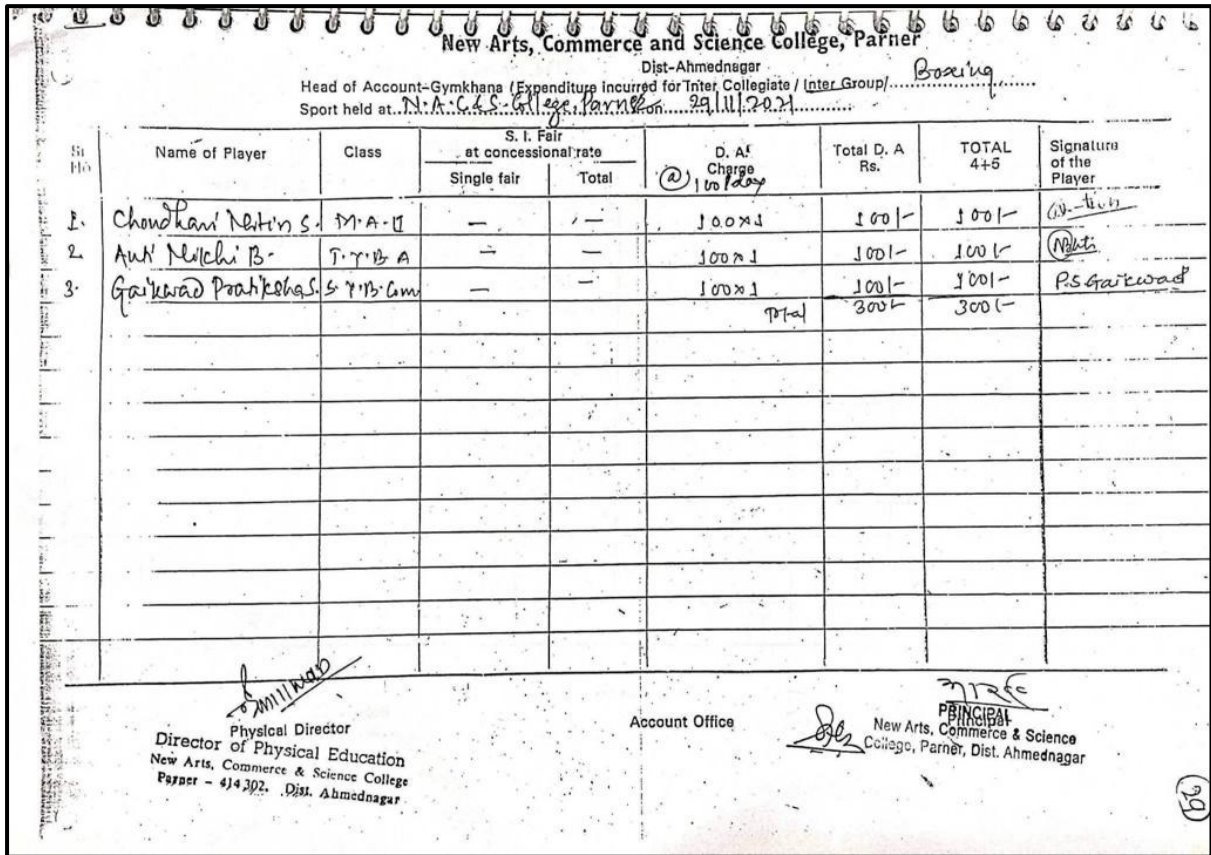 New Arts, Commerce and Science College, Parner
Dist-Ahmednagar
Head of Account-Gymkhana / Expenditure incurred for Inter Collegiate / Inter Group/ Boxing
Sport held at N.A.C.&S. College, Parner on 29/11/2021
Sr No Name of Player Class S. I. Fair at concessional rate Single fair Total D. A. Charge @ 100/day Total D. A Rs. TOTAL 4+5 Signature of the Player
1. Choudhari Nitin S. M.A-II — — 100x1 100/- 100/-
2. B. T.Y.B A — — 100x1 100/- 100/-
3. Gaikwad Pratiksha S. S.Y.B.Com — — 100x1 100/- 100/- P.S Gaikwad
Total 300/- 300/-
Physical Director
Director of Physical Education
New Arts, Commerce & Science College
Parner - 414302. Dist. Ahmednagar
Account Office
PRINCIPAL
Principal
New Arts, Commerce & Science
College, Parner, Dist. Ahmednagar
29